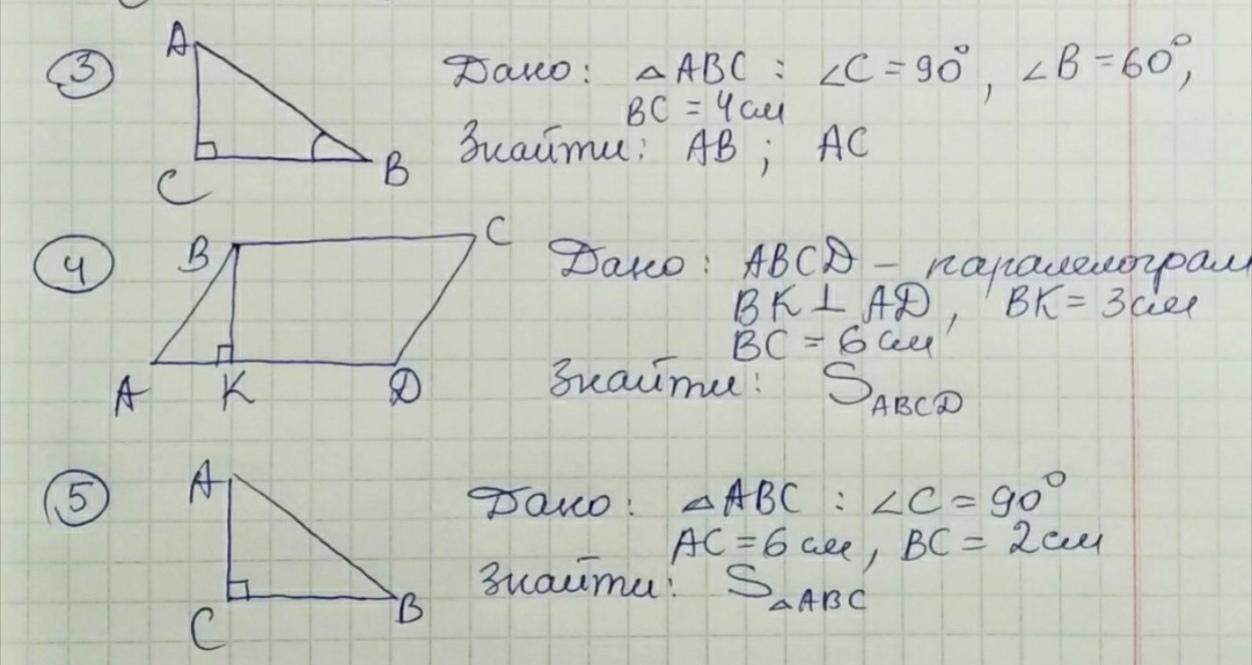 3 Дано: △ABC : ∠C = 90°, ∠B = 60°,
BC = 4 см
Знайти: AB ; AC
A
C
B
4 Дано: ABCD – паралелограм
BK ⊥ AD, BK = 3 см
BC = 6 см
Знайти: S ABCD
B
C
A
K
D
5 Дано: △ABC : ∠C = 90°
AC = 6 см, BC = 2 см
Знайти: S △ABC
A
C
B